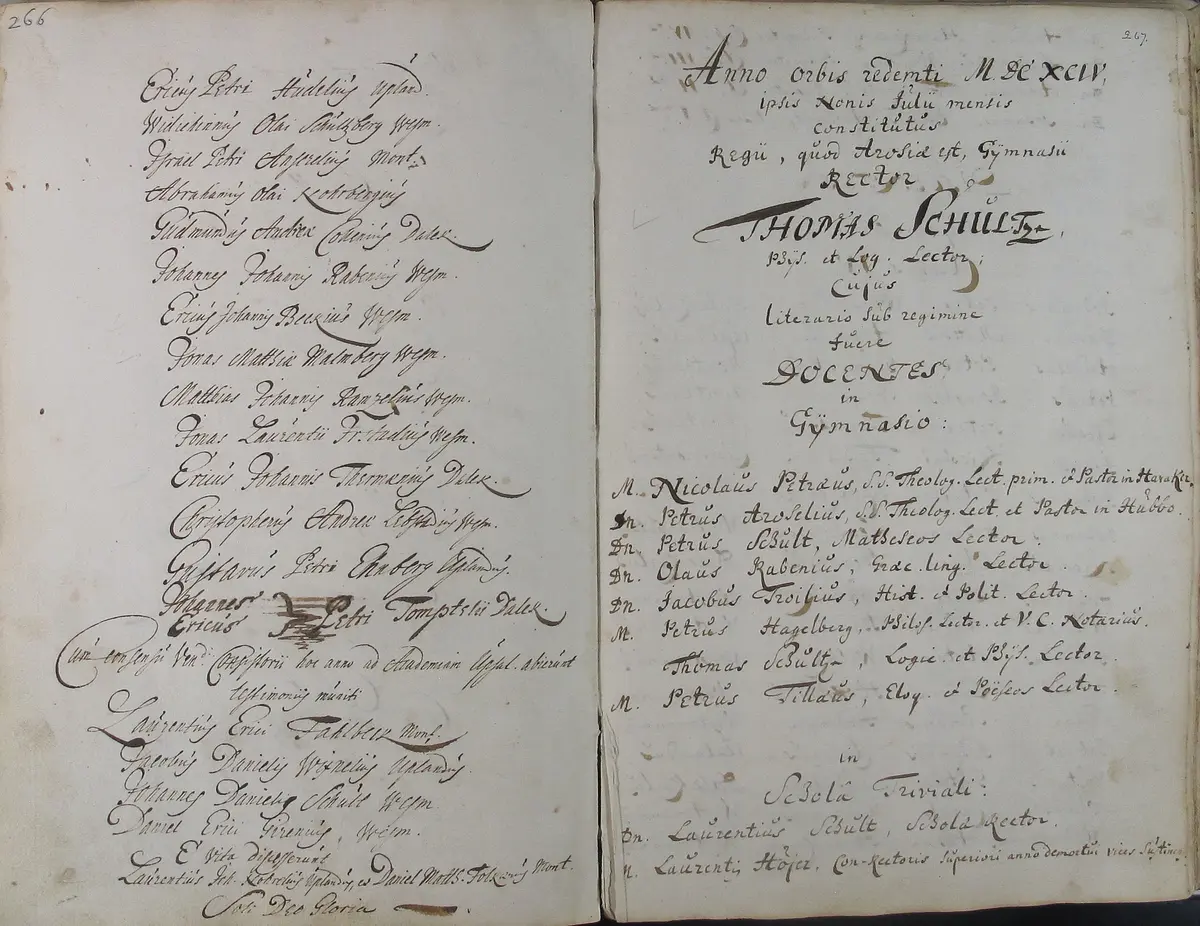 266
Ericus Petri Hudelius Upland.
Olai Wesm.
Israel Petri Anserelius Mont.
Abrahamus Olai
Gudmundus Andreæ Dalek.
Johannes Johannis Rabenius Wesm.
Ericus Johannis Beckius Wesm.
Jonas Matthiæ Malmberg Wesm.
Matthias Johannis Ramzelius Wesm.
Jonas Laurentii Wesm.
Ericus Johannis Thermænius Dalek.
Christopherus Andreæ Wesm.
Gustavus Petri Ehnberg Uplandus.
Johannes
Ericus Petri Tomptelii Dalek.
Cum consensu Ven. Consistorii hoc anno ad Academiam Upsal. abierunt
testimoniis muniti
Laurentius Erici Fahlbeck Mont.
Jacobus Danielis Uplandus.
Johannes Danielis Schult Wesm.
Daniel Erici Wesm.
E vita discesserunt
Laurentius Joh. Uplandus, et Daniel Matth. Mont.
Soli Deo Gloria
267.
Anno orbis redemti M. DC XCIV,
ipsis Nonis Julii mensis
constitutus
Regii, quod Arosiæ est, Gÿmnasii
Rector
THOMAS SCHULTz,
Phÿs. et Log. Lector;
Cujus
literario sub regimine
fuere
DOCENTES
in
Gÿmnasio:
M. Nicolaus Petræus, S.S. Theolog. Lect. prim. & Pastor in Havaker.
Dn. Petrus Aroselius, S.S. Theolog. Lect. et Pastor in Hubbo.
Dn. Petrus Schult, Matheseos Lector.
Dn. Olaus Rabenius, Græc. ling. Lector.
Dn. Jacobus Troilius, Hist. & Polit. Lector.
M. Petrus Hagelberg, Philos. Lector. et V. C. Notarius.
Thomas Schultz, Logic. et Phÿs. Lector.
M. Petrus Tillæus, Eloq. & Poëseos Lector.
in
Scholâ Triviali:
Dn. Laurentius Schult, Scholæ Rector.
M. Laurentij Höjer, Con-Rectoris superiori anno demortui vices